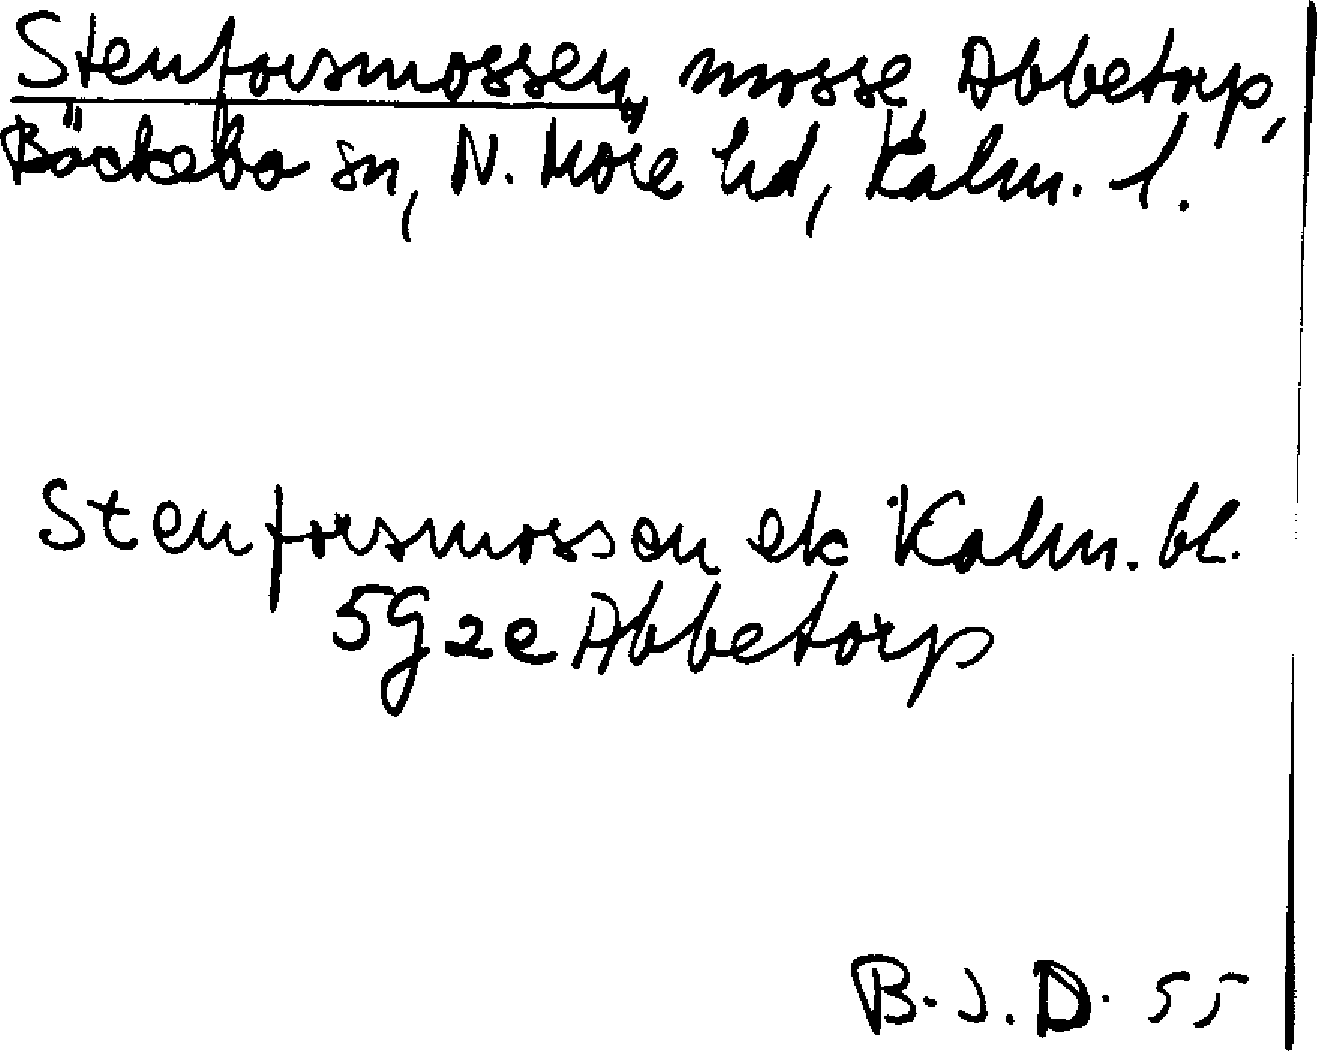 Stenforsmossen, mosse, Abbetorp,
Bäckebo sn, N. Möre hd, Kalm. l.
Stenforsmossen ek Kalm. bl.
5g2e Abbetorp
B.J.D. 55